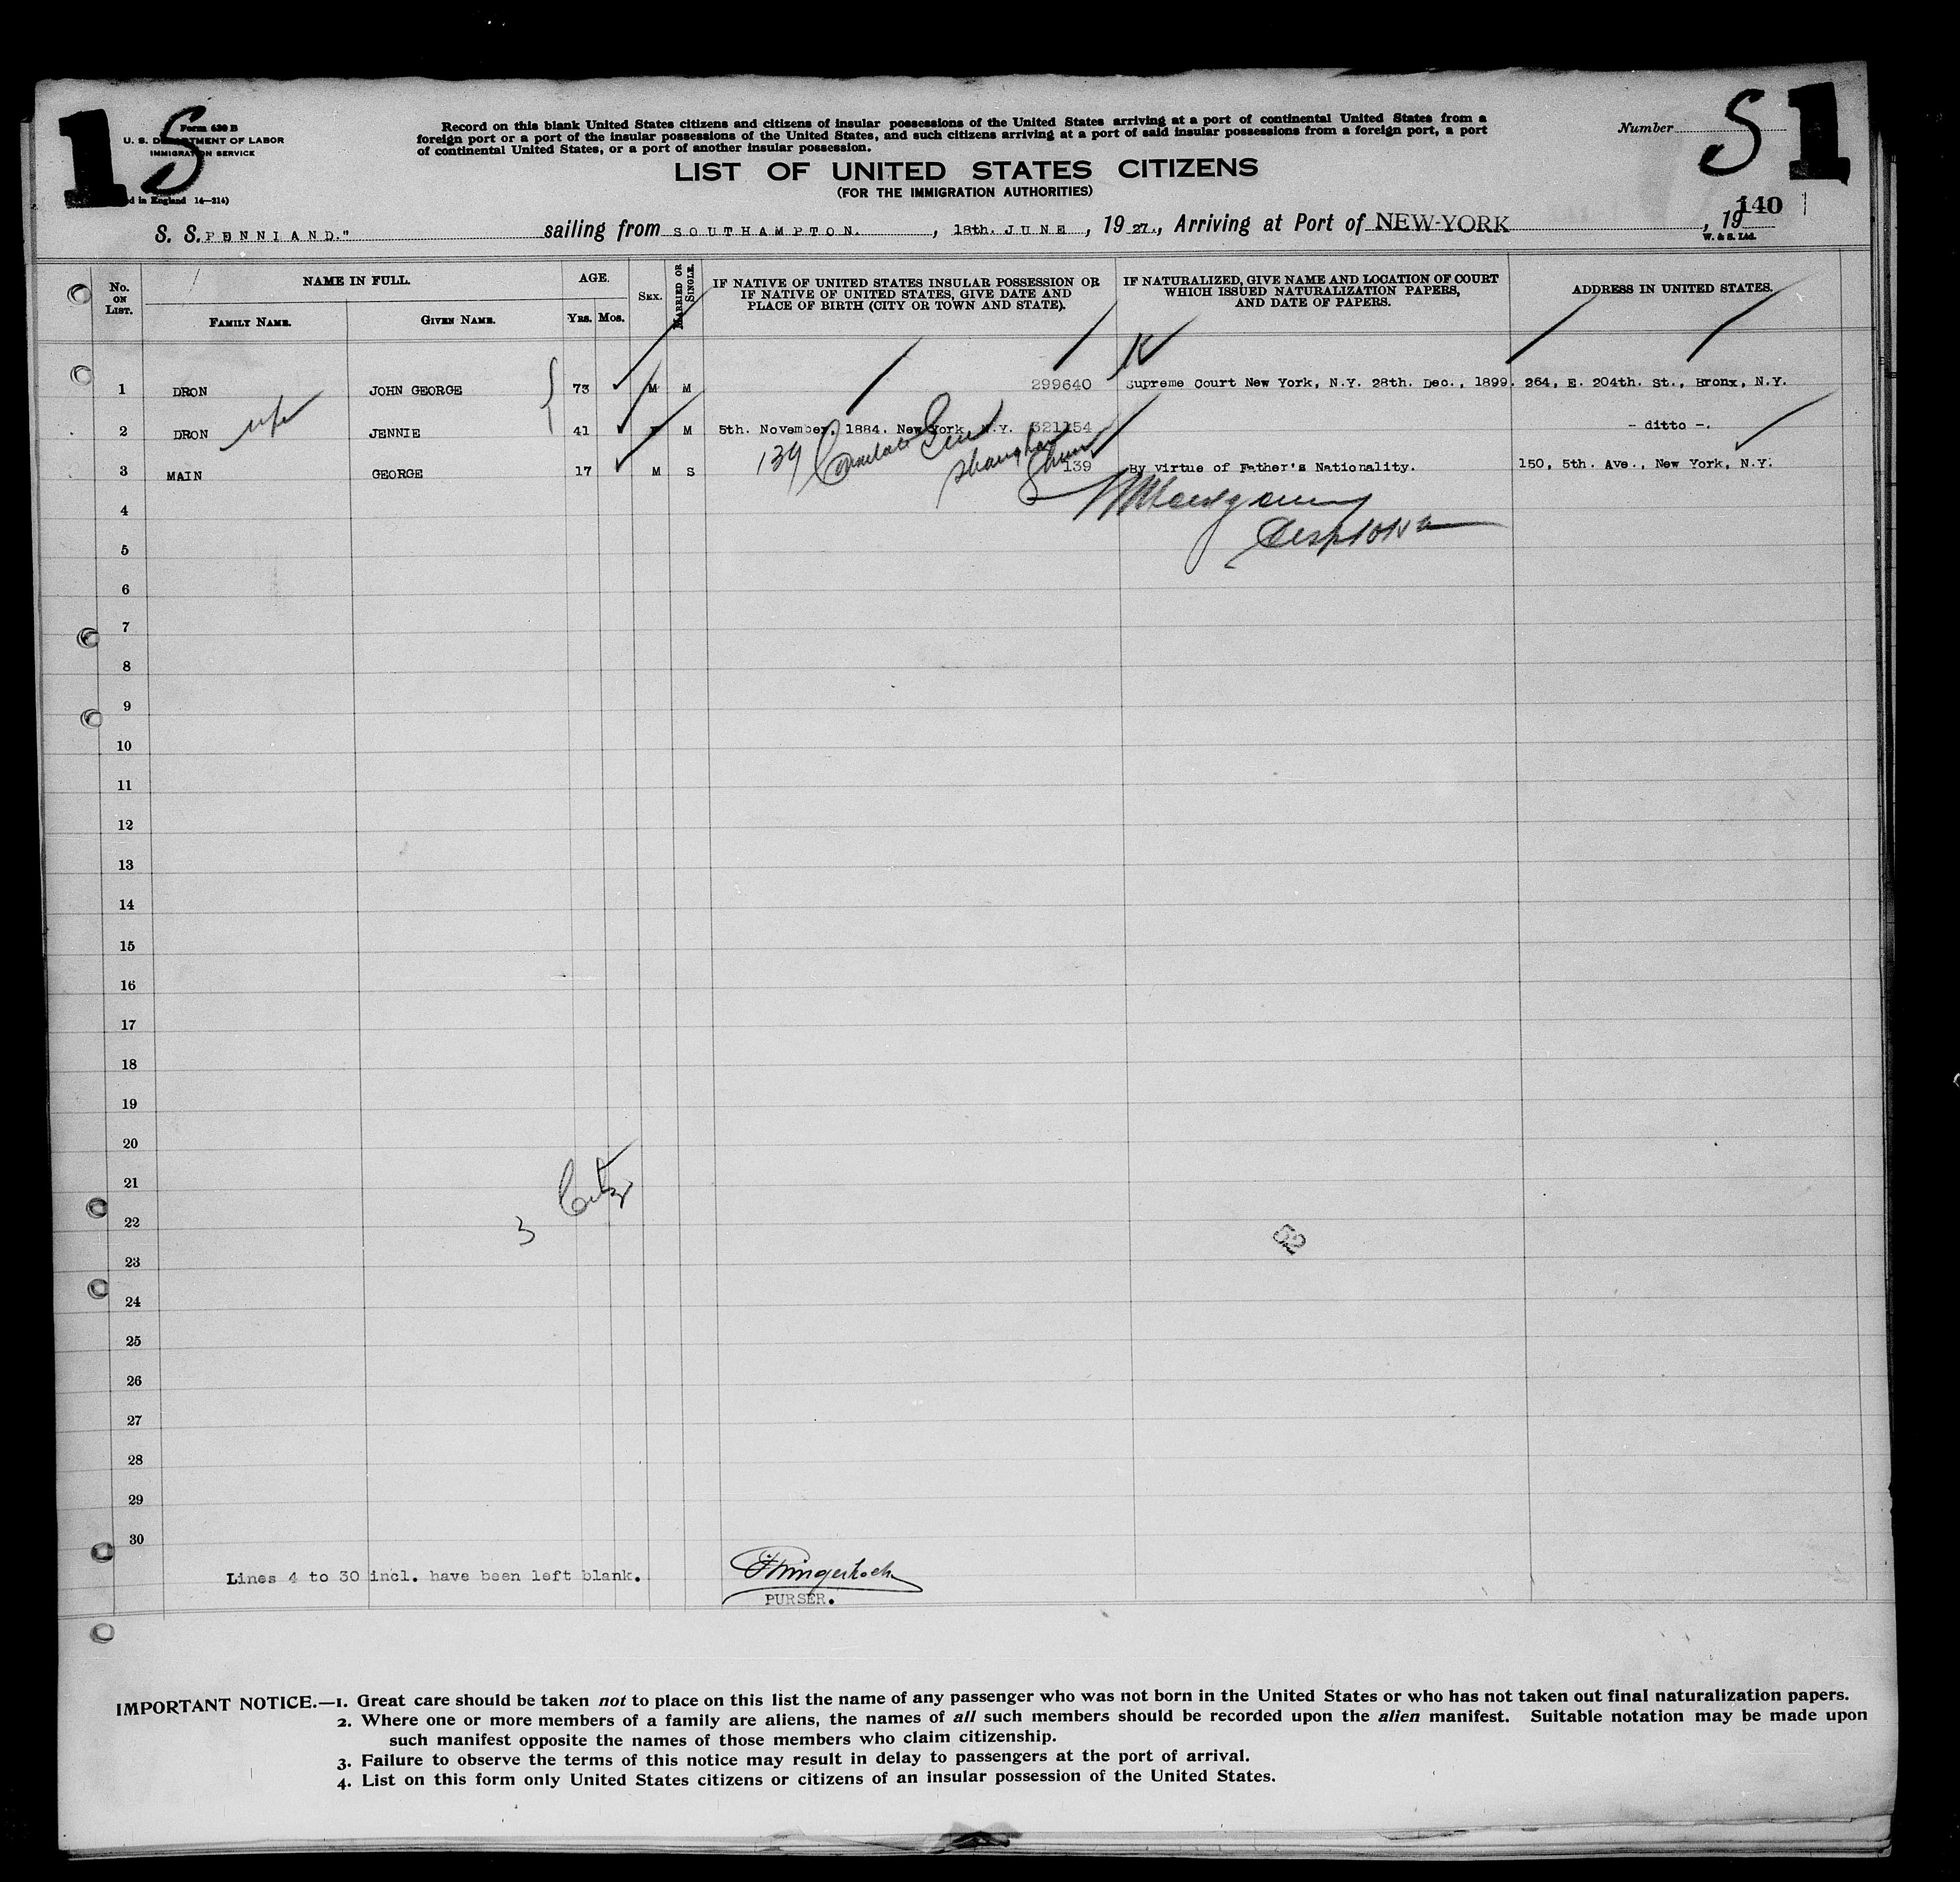 1 S
Form 630 B
U. S. DEPARTMENT OF LABOR
IMMIGRATION SERVICE
d in England 14—214)
Record on this blank United States citizens and citizens of insular possessions of the United States arriving at a port of continental United States from a
foreign port or a port of the insular possessions of the United States, and such citizens arriving at a port of said insular possessions from a foreign port, a port
of continental United States, or a port of another insular possession.
Number S 1
LIST OF UNITED STATES CITIZENS
(FOR THE IMMIGRATION AUTHORITIES)
140
S. S. PENNLAND." sailing from SOUTHAMPTON. , 18th. JUNE , 19 27., Arriving at Port of NEW-YORK , 19
W. & S. Ltd.
No. ON LIST. NAME IN FULL. AGE. SEX. MARRIED OR SINGLE. IF NATIVE OF UNITED STATES INSULAR POSSESSION OR IF NATIVE OF UNITED STATES, GIVE DATE AND PLACE OF BIRTH (CITY OR TOWN AND STATE). IF NATURALIZED, GIVE NAME AND LOCATION OF COURT WHICH ISSUED NATURALIZATION PAPERS, AND DATE OF PAPERS. ADDRESS IN UNITED STATES.
FAMILY NAME. GIVEN NAME. YRS. MOS.
1 DRON JOHN GEORGE 73 M M 299640 Supreme Court New York, N.Y. 28th. Dec., 1899. 264, E. 204th. St., Bronx, N.Y.
wife
2 DRON JENNIE 41 F M 5th. November, 1884. New York, N.Y. 321154 - ditto -.
139 Consulate Genl Shanghai China
3 MAIN GEORGE 17 M S 139 By virtue of Father's Nationality. 150, 5th. Ave., New York, N.Y.
4
5
6
7
8
9
10
11
12
13
14
15
16
17
18
19
20
21
22
23
24
25
26
27
28
29
30
3 Citz
52
Lines 4 to 30 incl. have been left blank.
PURSER.
IMPORTANT NOTICE.—1. Great care should be taken not to place on this list the name of any passenger who was not born in the United States or who has not taken out final naturalization papers.
2. Where one or more members of a family are aliens, the names of all such members should be recorded upon the alien manifest. Suitable notation may be made upon
such manifest opposite the names of those members who claim citizenship.
3. Failure to observe the terms of this notice may result in delay to passengers at the port of arrival.
4. List on this form only United States citizens or citizens of an insular possession of the United States.